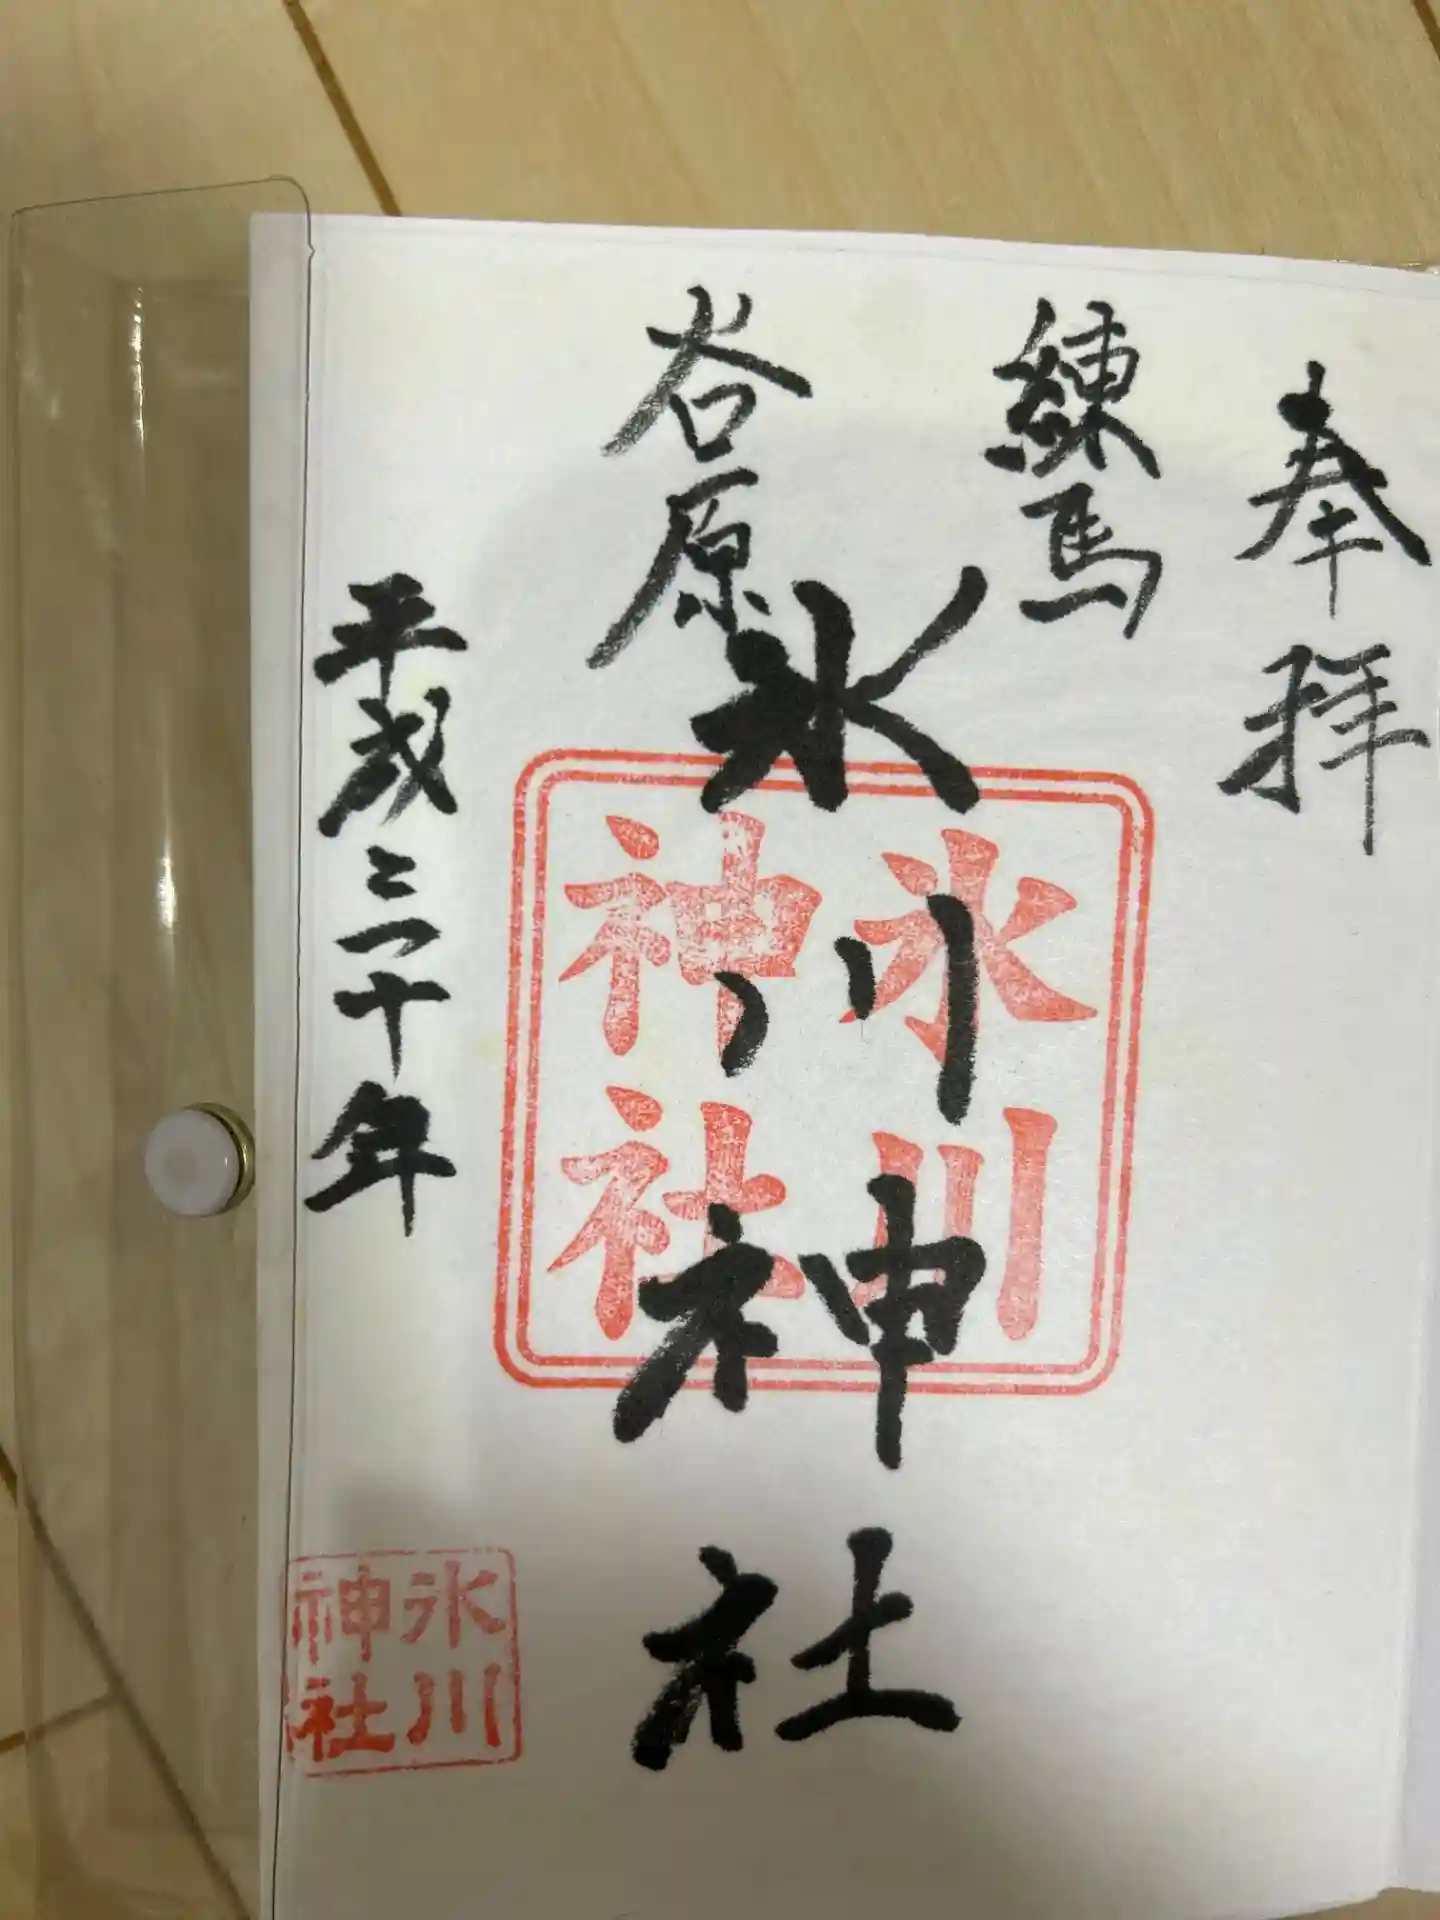 奉拝
練馬
谷原
氷川神社
平成三十年
氷川
神社
氷川
神社